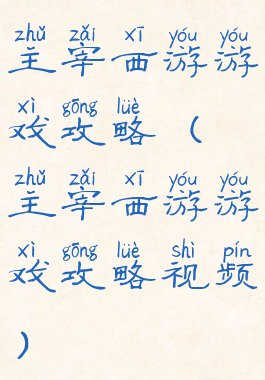 zhǔ zǎi xī yóu yóu
主宰西游游
xì gōng lüè
戏攻略（
zhǔ zǎi xī yóu yóu
主宰西游游
xì gōng lüè shì pín
戏攻略视频
）